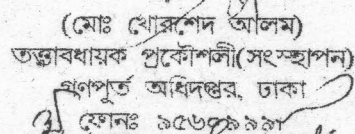 (মোঃ খোরশেদ আলম)
তত্ত্বাবধায়ক প্রকৌশলী(সংস্হাপন)
গণপূর্ত অধিদপ্তর, ঢাকা
ফোনঃ